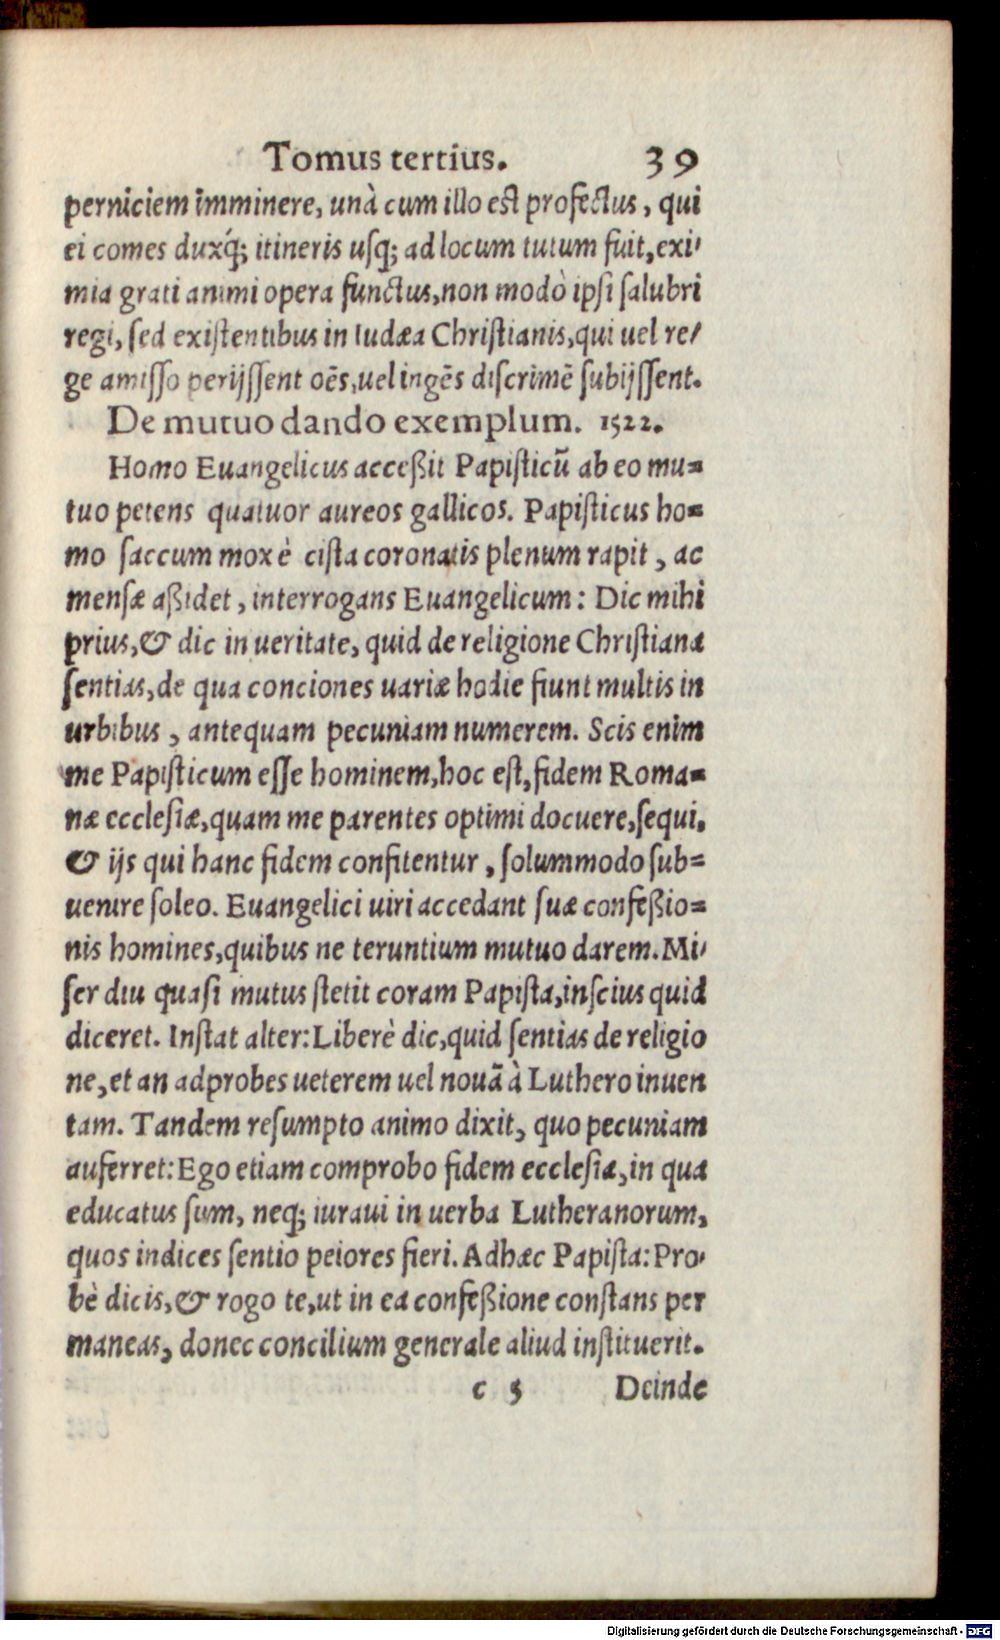 Tomus tertius. 39
perniciem imminere, unà cum illo est profectus, qui
ei comes duxq́; itineris usq; ad locum tutum fuit, exi-
mia grati animi opera functus, non modò ipsi salubri
regi, sed existentibus in Iudæa Christianis, qui uel re-
ge amisso perijssent oēs, uel ingēs discrimē subijssent.
De mutuo dando exemplum. 1522.
Homo Euangelicus acceßit Papisticū ab eo mu-
tuo petens quatuor aureos gallicos. Papisticus ho-
mo saccum mox è cista coronatis plenum rapit, ac
mensæ aßidet, interrogans Euangelicum: Dic mihi
prius, & dic in ueritate, quid de religione Christiana
sentias, de qua conciones uariæ hodie fiunt multis in
urbibus, antequam pecuniam numerem. Scis enim
me Papisticum esse hominem, hoc est, fidem Roma-
næ ecclesiæ, quam me parentes optimi docuere, sequi.
& ijs qui hanc fidem confitentur, solummodo sub-
uenire soleo. Euangelici uiri accedant suæ confeßio-
nis homines, quibus ne teruntium mutuo darem. Mi-
ser diu quasi mutus stetit coram Papista, inscius quid
diceret. Instat alter: Liberè dic, quid sentias de religio
ne, et an adprobes ueterem uel nouā à Luthero inuen
tam. Tandem resumpto animo dixit, quo pecuniam
auferret: Ego etiam comprobo fidem ecclesiæ, in qua
educatus sum, neq; iuraui in uerba Lutheranorum,
quos indices sentio peiores fieri. Ad hæc Papista: Pro-
bè dicis, & rogo te, ut in ea confeßione constans per
maneas, donec concilium generale aliud instituerit.
c 5 Deinde
Digitalisierung gefördert durch die Deutsche Forschungsgemeinschaft - DFG